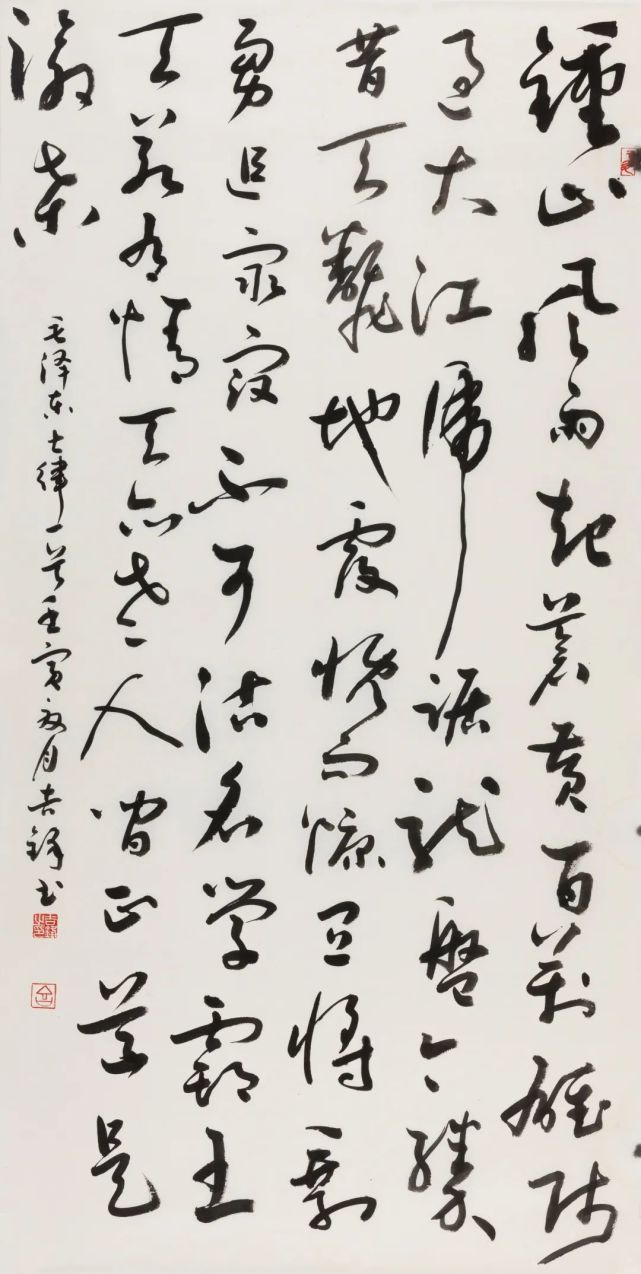 鍾山风雨起蒼黄百萬雄师
过大江虎踞龙盤今勝
昔天翻地覆慨而慷宜将剩
勇追穷寇不可沽名学霸王
天若有情天亦老人间正道是
滄桑
毛泽东七律一首壬寅秋月吉锋书